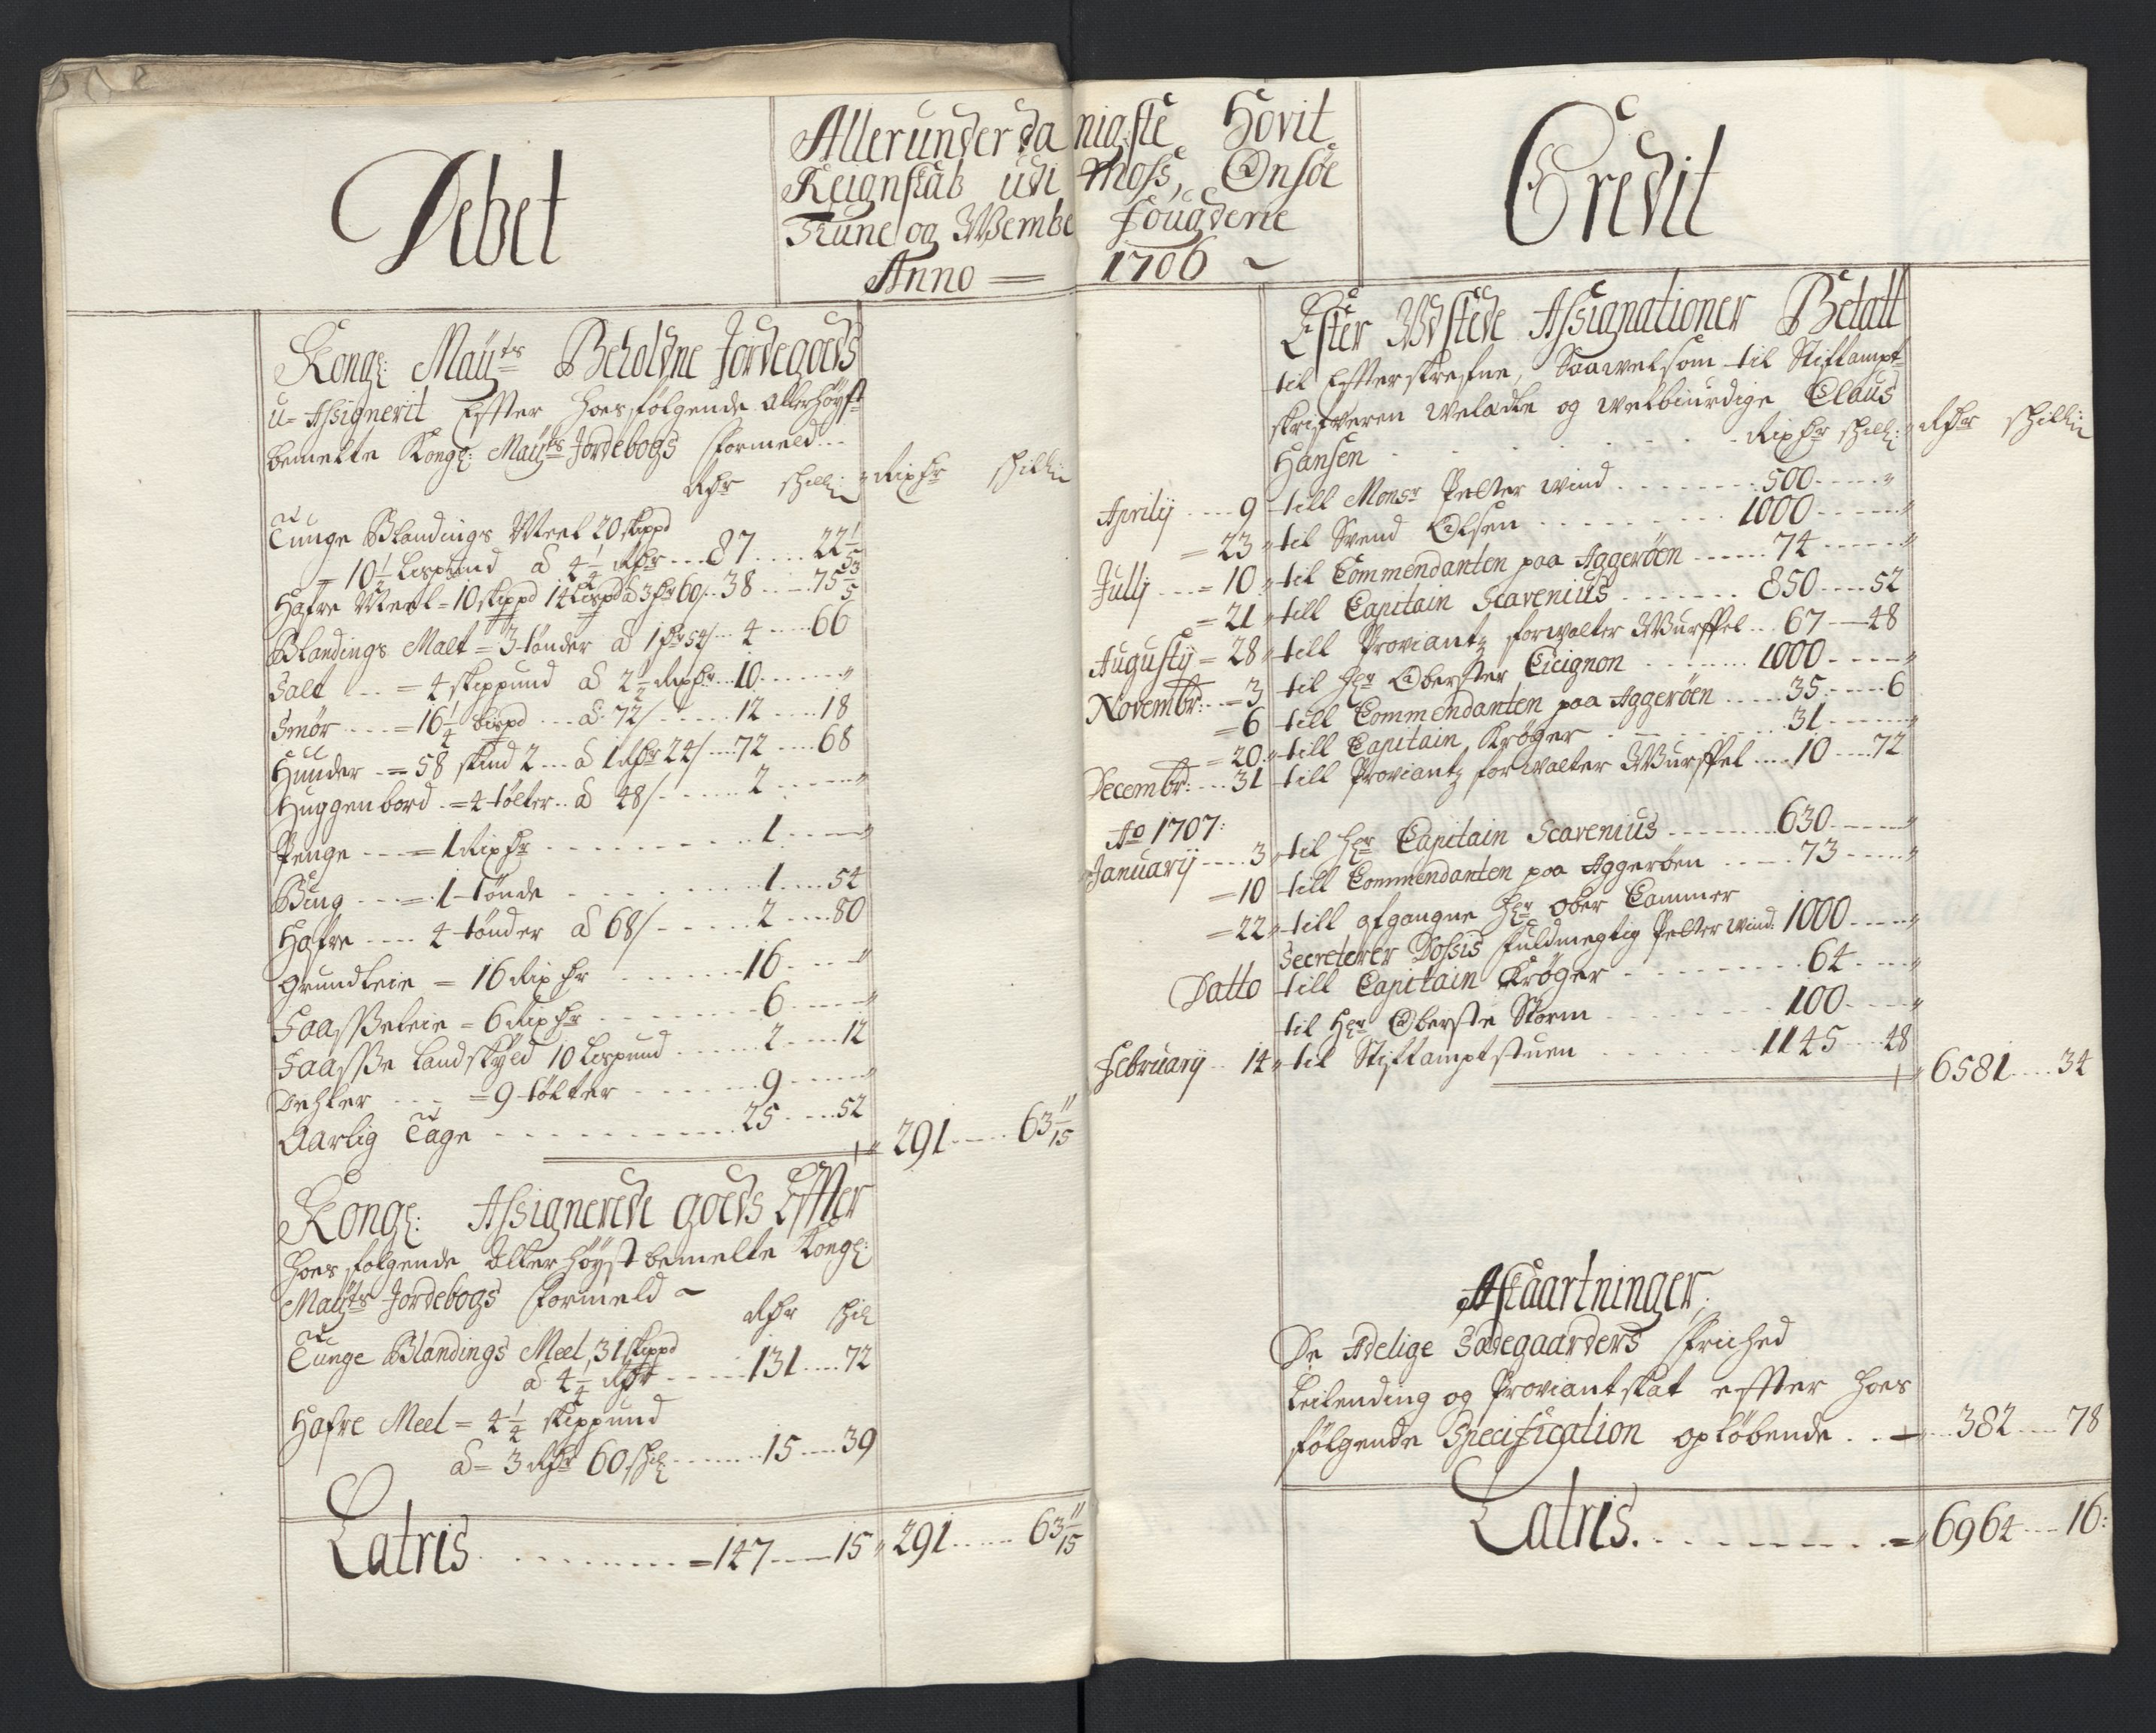 Debet
Allerunderdanigste Hovit
Reignskab udi Moss, Onsöe
Tune og Wembe Fougderie
Anno = 1706
Credit
Kongl: Mayts Beholdne Jordegoeds
u-Assignerit Effter hoesfølgende allerhöyst
bemelte Kongl: Mayts Jordebogs formeld
Rdr shill: Rixdr shill:
Tunge Blandings Meel 20 skippd
= 10 1/2 Lispund a 4 1/4 Rdr 87 22 1/5
Hafre Meel = 10 skippd 14 Lispd a 3 dr 60/ 38 75 3/5
Blandings Malt = 3 tønder a 1 dr 54/ 4 66
Salt = 4 skippund a 2 1/2 Rixdr 10 "
Smör = 16 1/4 bispd a 72/ 12 18
Huuder = 58 skind 2 a 1 Rdr 24/ 72 68
Huggenbord = 4 tølter a 48/ 2 "
Penge = 1 Rixdr 1 "
Biug = 1 tønde 1 54
Hafre 4 tønder a 68/ 2 80
Grundleie = 16 Rixdr 16 "
Saugleie = 6 Rixdr 6 "
Landskyld 10 Lispund 2 12
Dehler = 9 tölter 9 "
Aarlig Tage 25 52
291 63 11/15
Kongl: Assignerede goeds Effter
hoesfølgende Allerhöyst bemelte Kongl:
Mayts Jordebogs formeld
Rdr shil
Tunge Blandings Meel 31 skippd
a 4 1/4 Rdr 131 72
Hafre Meel = 4 1/4 skippund
a = 3 Rdr 60 shl 15 39
Latris = 147 15 291 63 11/15
Efter Udstede Assignationer Betalt
til Effterskrefne, Saavelsom til Stiftampt
skrifveren Welædle og Welbiurdige Claus
Hansen Rixdr shill: Rdr shill:
Aprilij 9 till Monsr Petter Wind 500 "
= 23 til Svend Olsen 1000 "
Julij = 10 til Commendanten paa Aggeröen 74 "
= 21 till Capitain Scavenius 850 52
Augustij = 28 till Proviantz forwalter Wurffel 67 48
Novembr: = 3 til Hr Oberster Cicignon 1000 "
= 6 till Commendanten paa Aggeröen 35 6
= 20 till Capitain Krøger 31 "
Decembr: 31 till Proviantz forwalter Wurffel 10 72
Ao 1707:
Januarij 3 til Hr Capitain Scavenius 630 "
= 10 till Commendanten paa Aggeröen 73 "
= 22 till afgangne Hr Ober Cammer
Secreterer Dossis fuldmegtig Petter Wind: 1000 "
Datto till Capitain Krøger 64 "
til Hr Oberste Storm 100 "
Februarij 14 til Stiftamptstuen 1145 48
6581 34
Afkaartninger
De Adelige Sædegaarders friehed
Leilending og Proviantskat effter hoes
følgende Specification opløbende 382 78
Latris. = 6964 16: